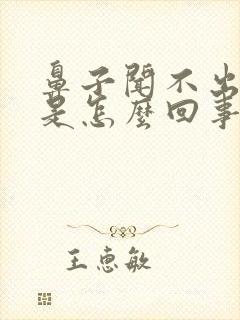 鼻子闻不出
是怎麽回事
王惠敏